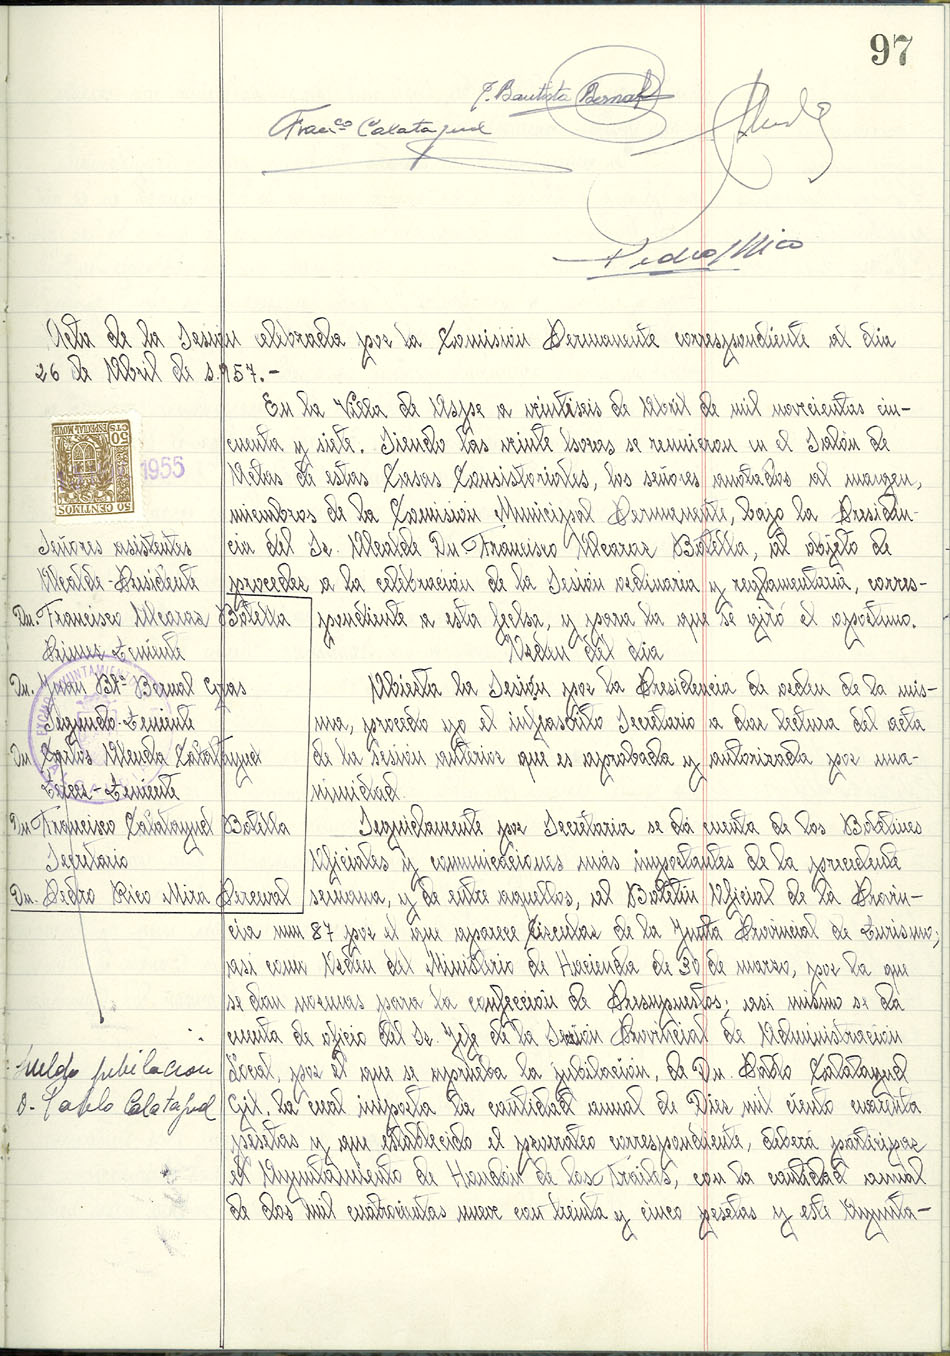 97
J. Bautista Bernal
Franco Calatayud
Pedro Rico
Acta de la Sesión celebrada por la Comisión Permanente correspondiente al día
26 de Abril de 1.957.-
En la Villa de Aspe a veintiseis de Abril de mil novecientos cin-
cuenta y siete. Siendo las veinte horas se reunieron en el Salón de
Actos de estas Casas Consistoriales, los señores anotados al margen,
miembros de la Comisión Municipal Permanente, bajo la Presiden-
cia del Sr. Alcalde Dn Francisco Alcaraz Botella, al objeto de
proceder a la celebración de la Sesión ordinaria y reglamentaria, corres-
pondiente a esta fecha, y para la que se giró el oportuno.
Orden del día
Abierta la Sesión por la Presidencia de orden de la mis-
ma, procedo yo el infrascrito Secretario a dar lectura del acta
de la sesión anterior que es aprobada y autorizada por una-
nimidad.
Seguidamente por Secretaria se dá cuenta de los Boletines
Oficiales y comunicaciones más importantes de la precedente
semana, y de entre aquellos, al Boletín Oficial de la Provin-
cia num 87 por el que aparece Circular de la Junta Provincial de Turismo;
asi como Orden del Ministerio de Hacienda de 30 de marzo, por la que
se dan normas para la confección de Presupuestos; asi mismo se dá
cuenta de oficio del Sr. Jefe de la Sección Provincial de Administración
Local, por el que se aprueba la jubilación, de Dn. Pablo Calatayud
Gil, la cual importa la cantidad anual de Diez mil ciento cuarenta
pesetas y que establecido el prorrateo correspondiente, deberá participar
el Ayuntamiento de Hondón de los Frailes, con la cantidad anual
de dos mil cuatrocientas nueve con treinta y cinco pesetas y este Ayunta-
50 CTS
ESPECIAL MOVIL
50 CENTIMOS
1955
Señores asistentes
Alcalde-Presidente
Dn. Francisco Alcaraz Botella
Primer Teniente
Dn. Juan Bta Bernal
Segundo-Teniente
Dn Carlos Calatayud
Tercer-Teniente
Dn Francisco Calatayud Botella
Secretario
Dn. Pedro Rico Mira Perceval
AYUNTAMIENTO
jubilacion
D. Pablo Calatayud